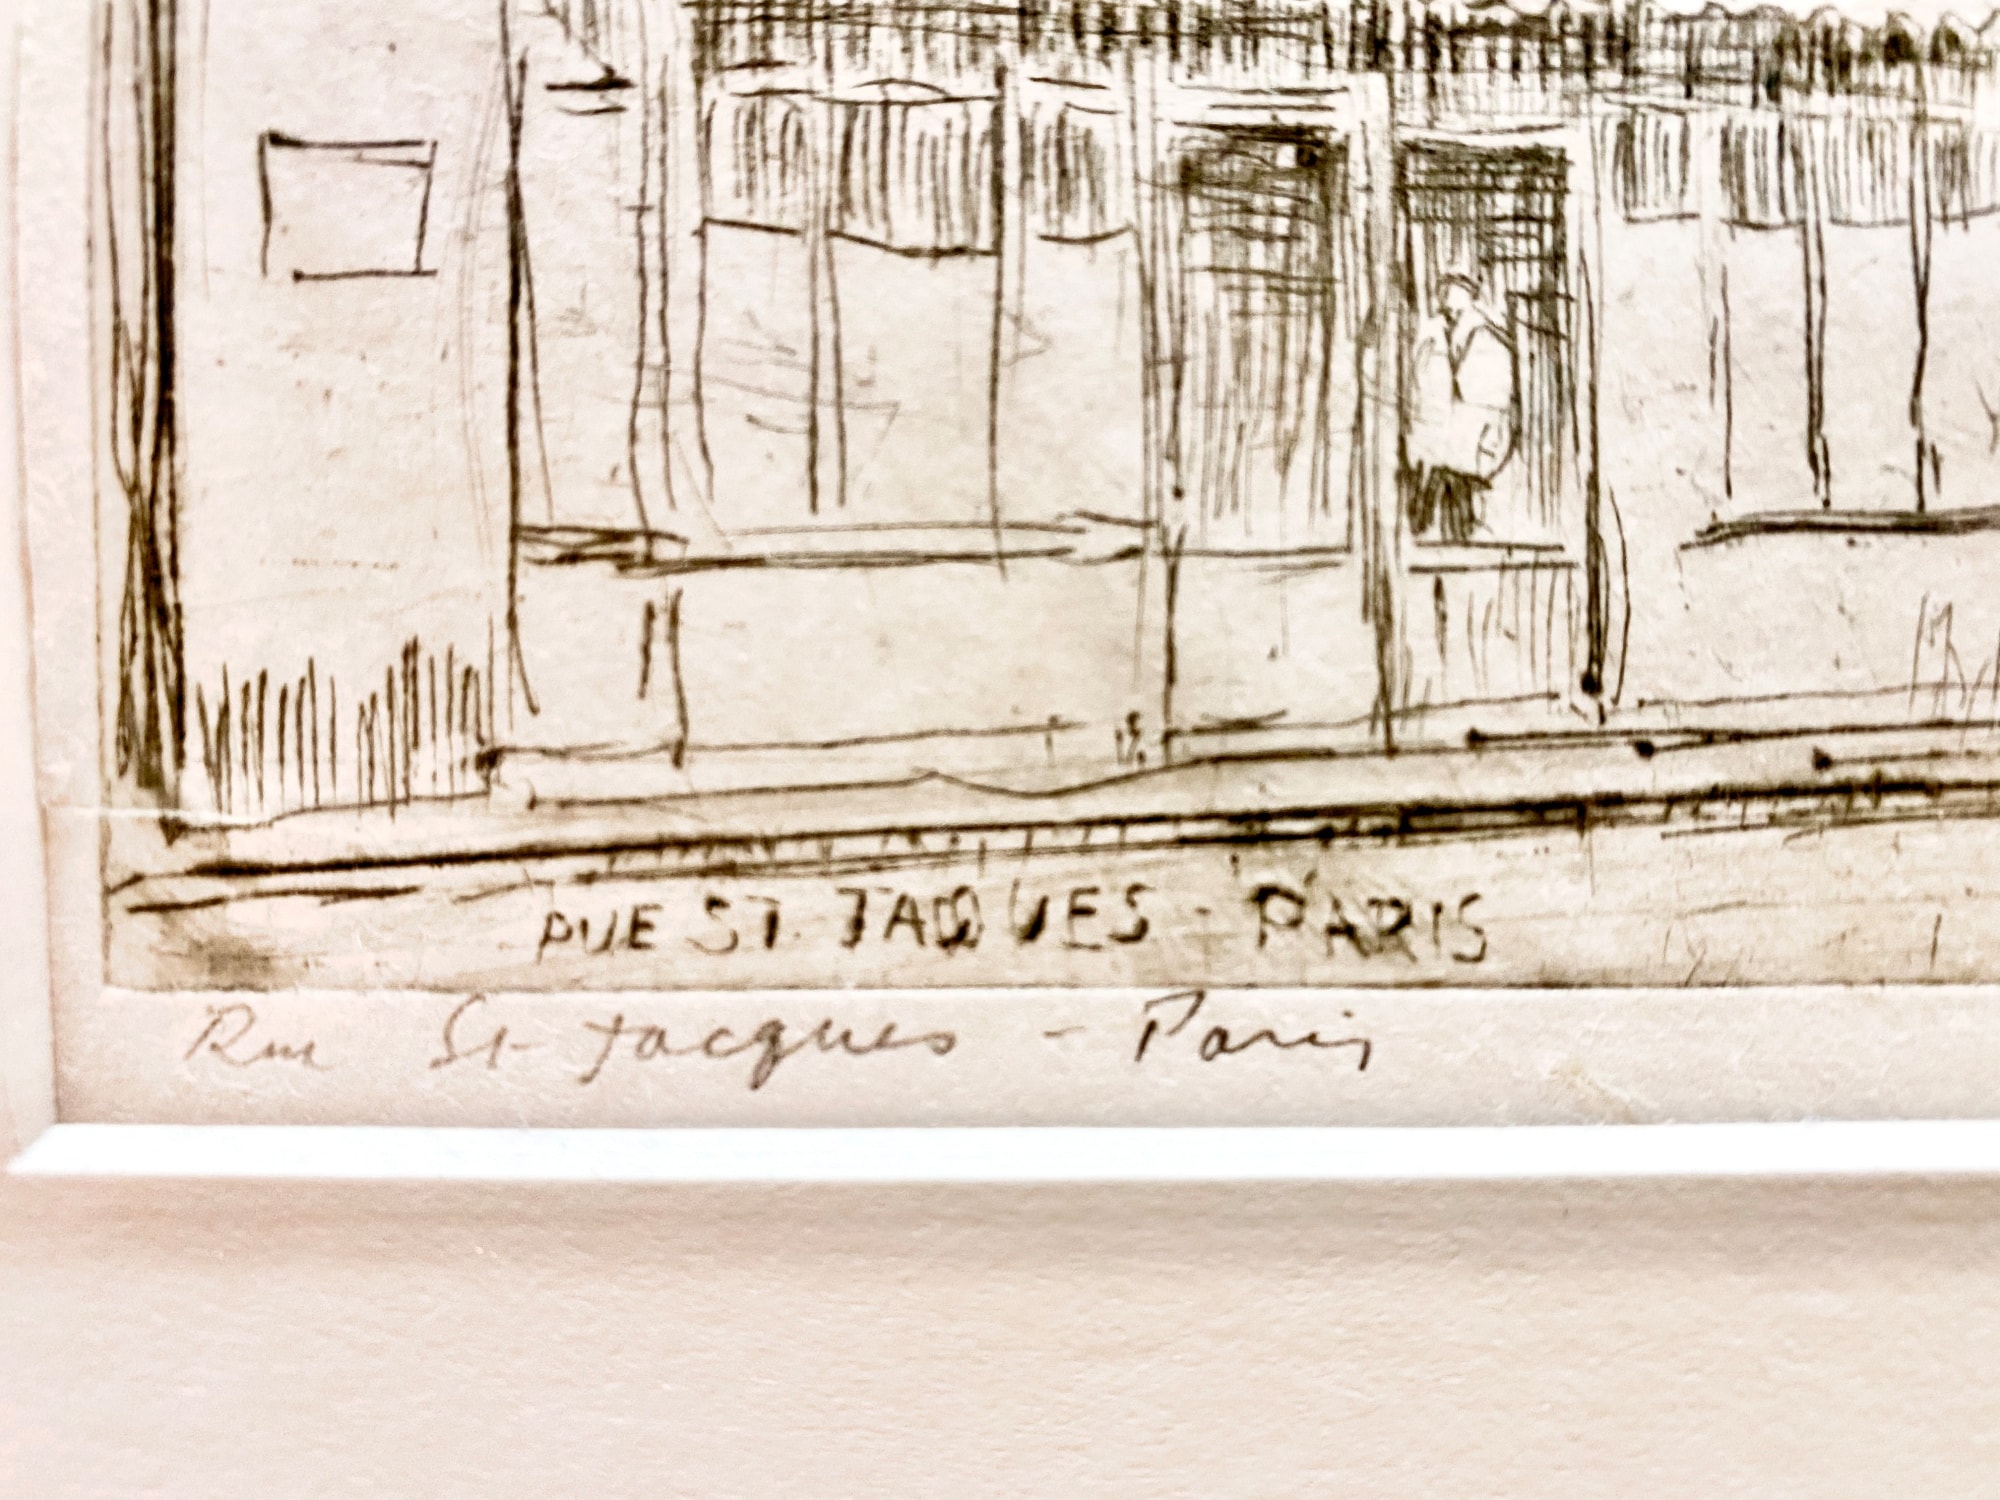 RUE ST. JAQUES - PARIS
Rue St Jacques - Paris